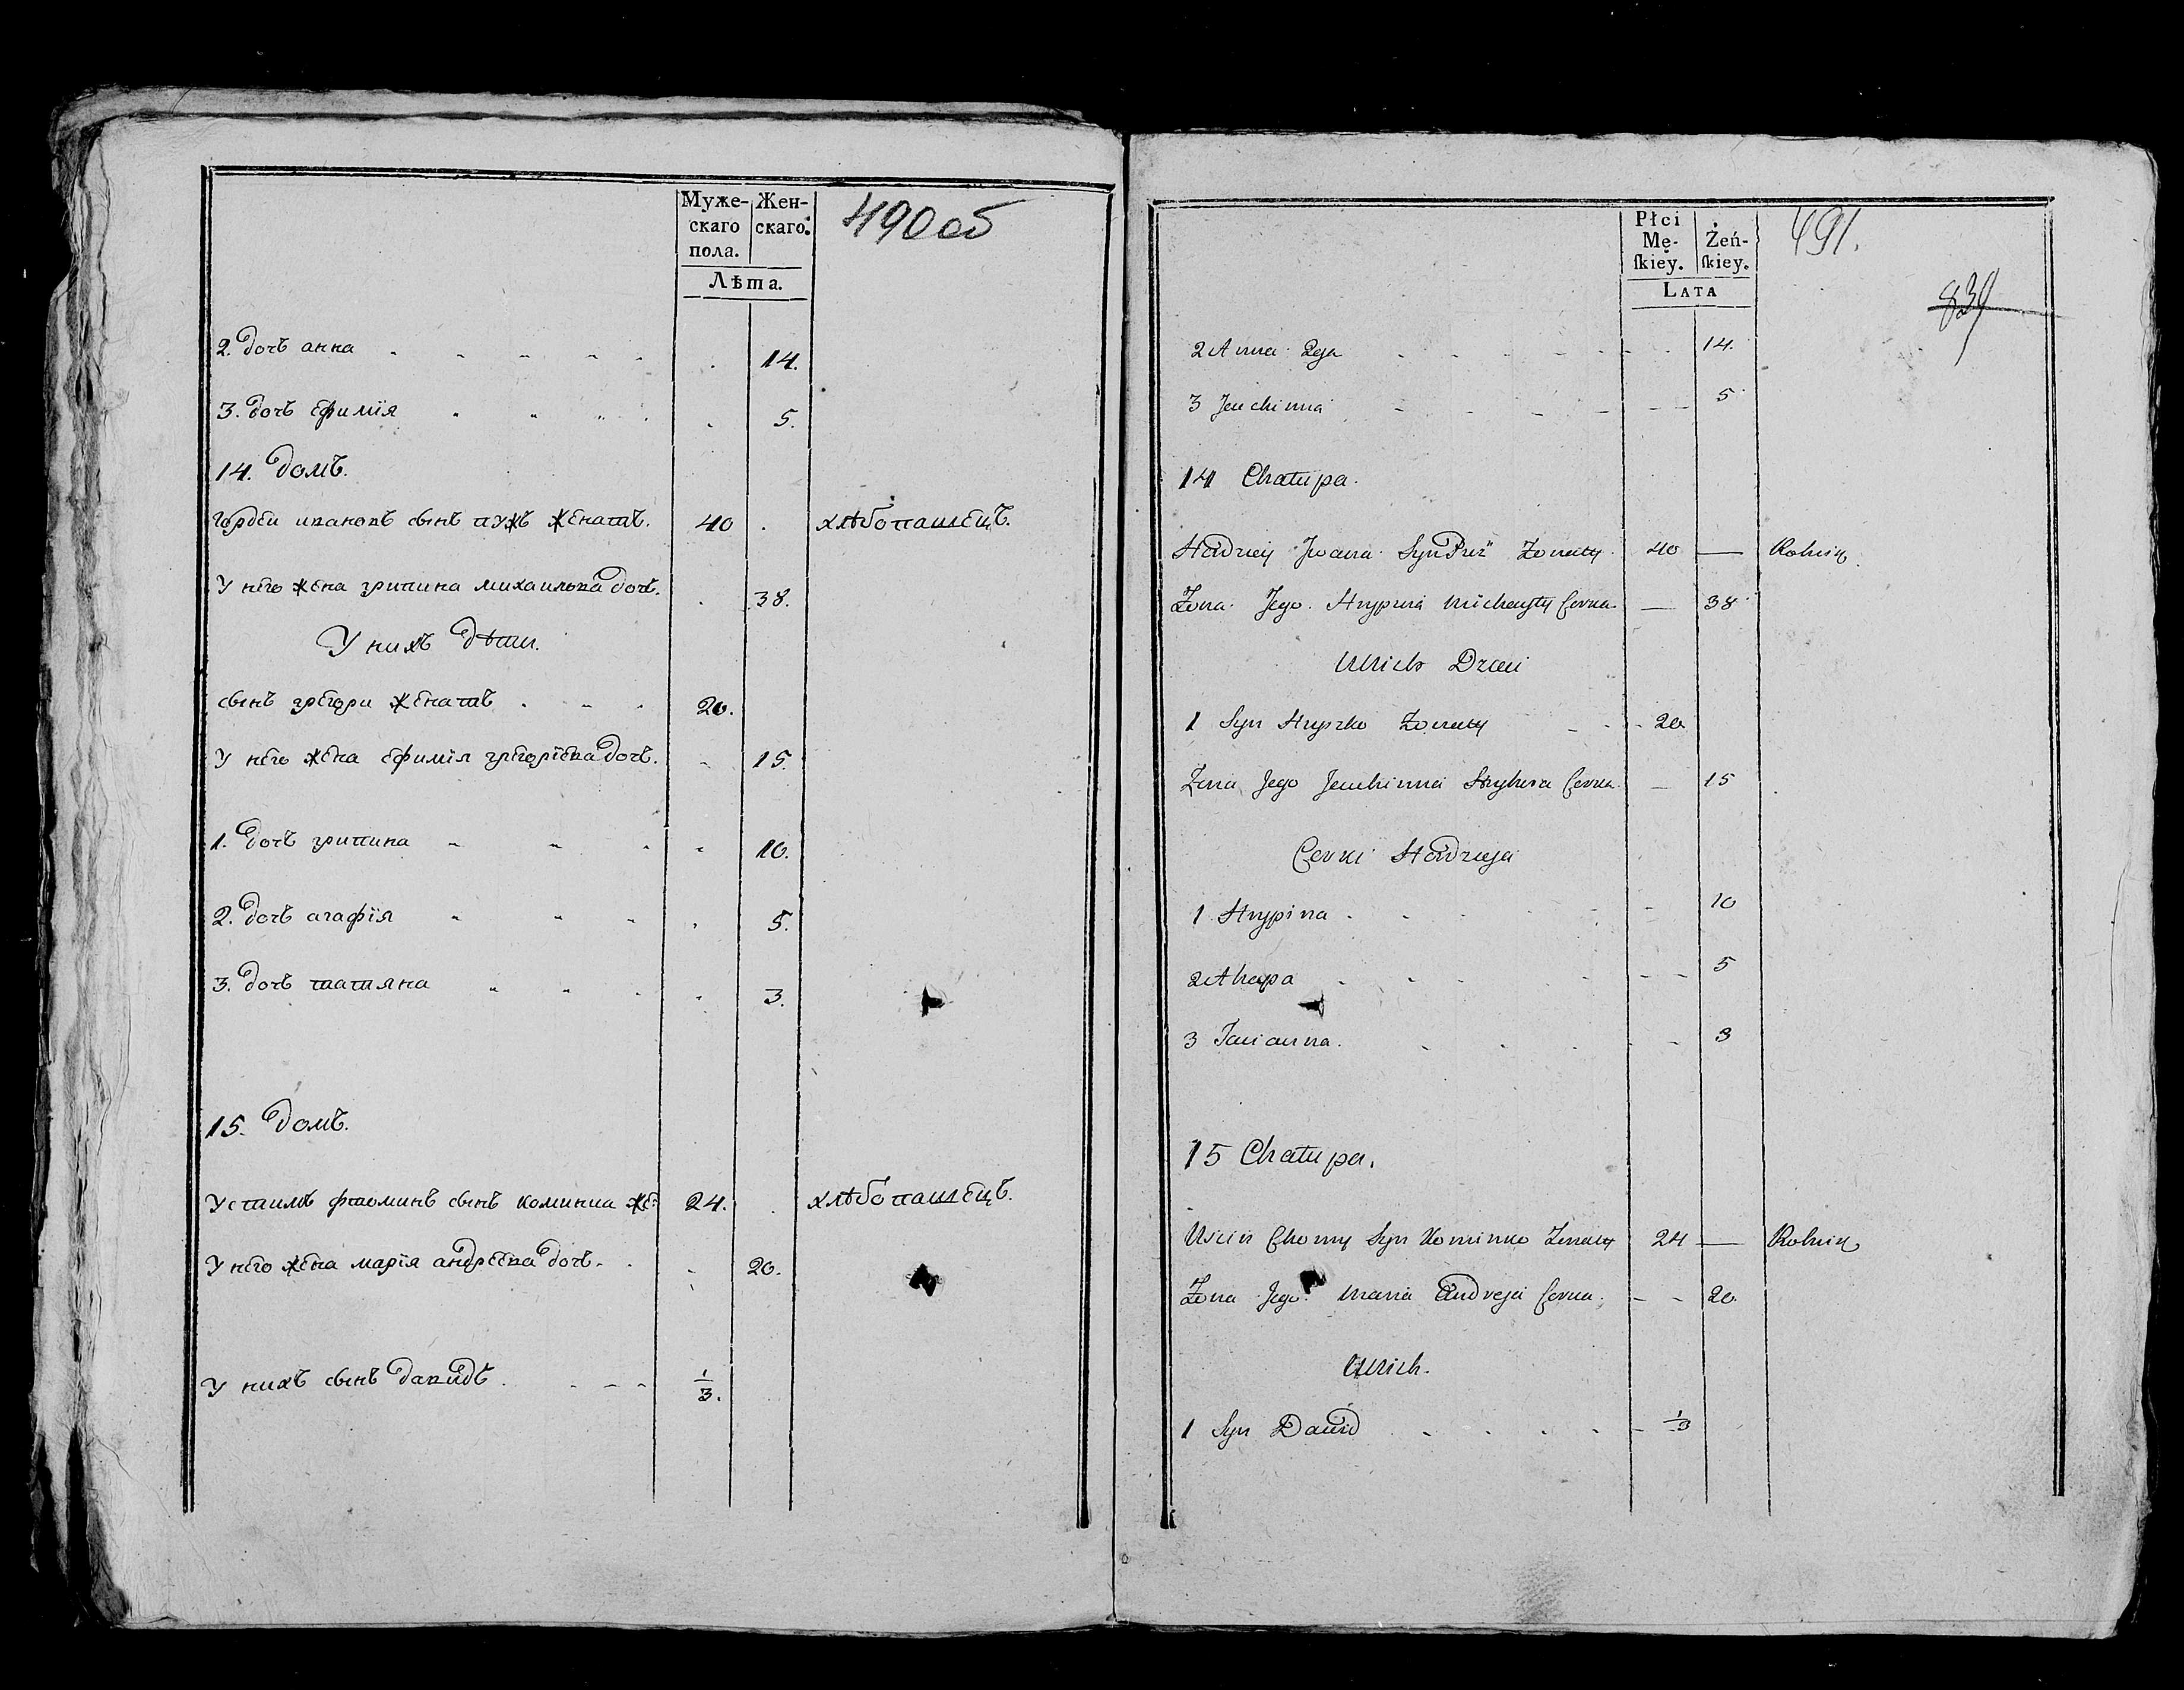 Муже-
скаго
пола.
Жен-
скаго.
Лѣта.
490 об
2. дочъ анна 14.
3. дочъ ефимїя 5.
14. домъ.
гордеи ивановъ сынъ пужъ женатъ. 40 . хлѣбопашецъ.
У него жена грипина михаилова дочъ. 38.
У нихъ дѣти.
сынъ грегори женатъ 20.
У него жена ефимїя грегорїева дочъ. 15.
1. дочъ грипина 10.
2. дочъ агафїя 5.
3. дочъ татяна 3.
15. домъ.
Устимъ фтоминъ сынъ коминка же: 24. хлѣбопашецъ.
У него жена марїя андреева дочъ. 20.
У нихъ сынъ давидъ 1/3.
Płci
Mę-
ſkiey.
Żeń-
ſkiey.
LATA
491.
839
2 Anna 14.
3 Jeuchimia 5
14 Chałupa.
Hordziey Jwana Syn Puż Żonaty 40 — Rolnik
Żona Jego Hrypina Michayły Corka — 38
U Nich Dzieci
1 Syn Hryszko Żonaty 20
Żona Jego Jeuchimia Hryhora Corka — 15
Corki Hordzieja
1 Hrypina 10
2 Ahapa 5
3 Tacianna 3
15 Chałupa.
Uscin Chomy Syn Kominko Żonaty 24 — Rolnik
Żona Jego Maria Andreja Corka. 20
U Nich.
1 Syn Dawid 1/3